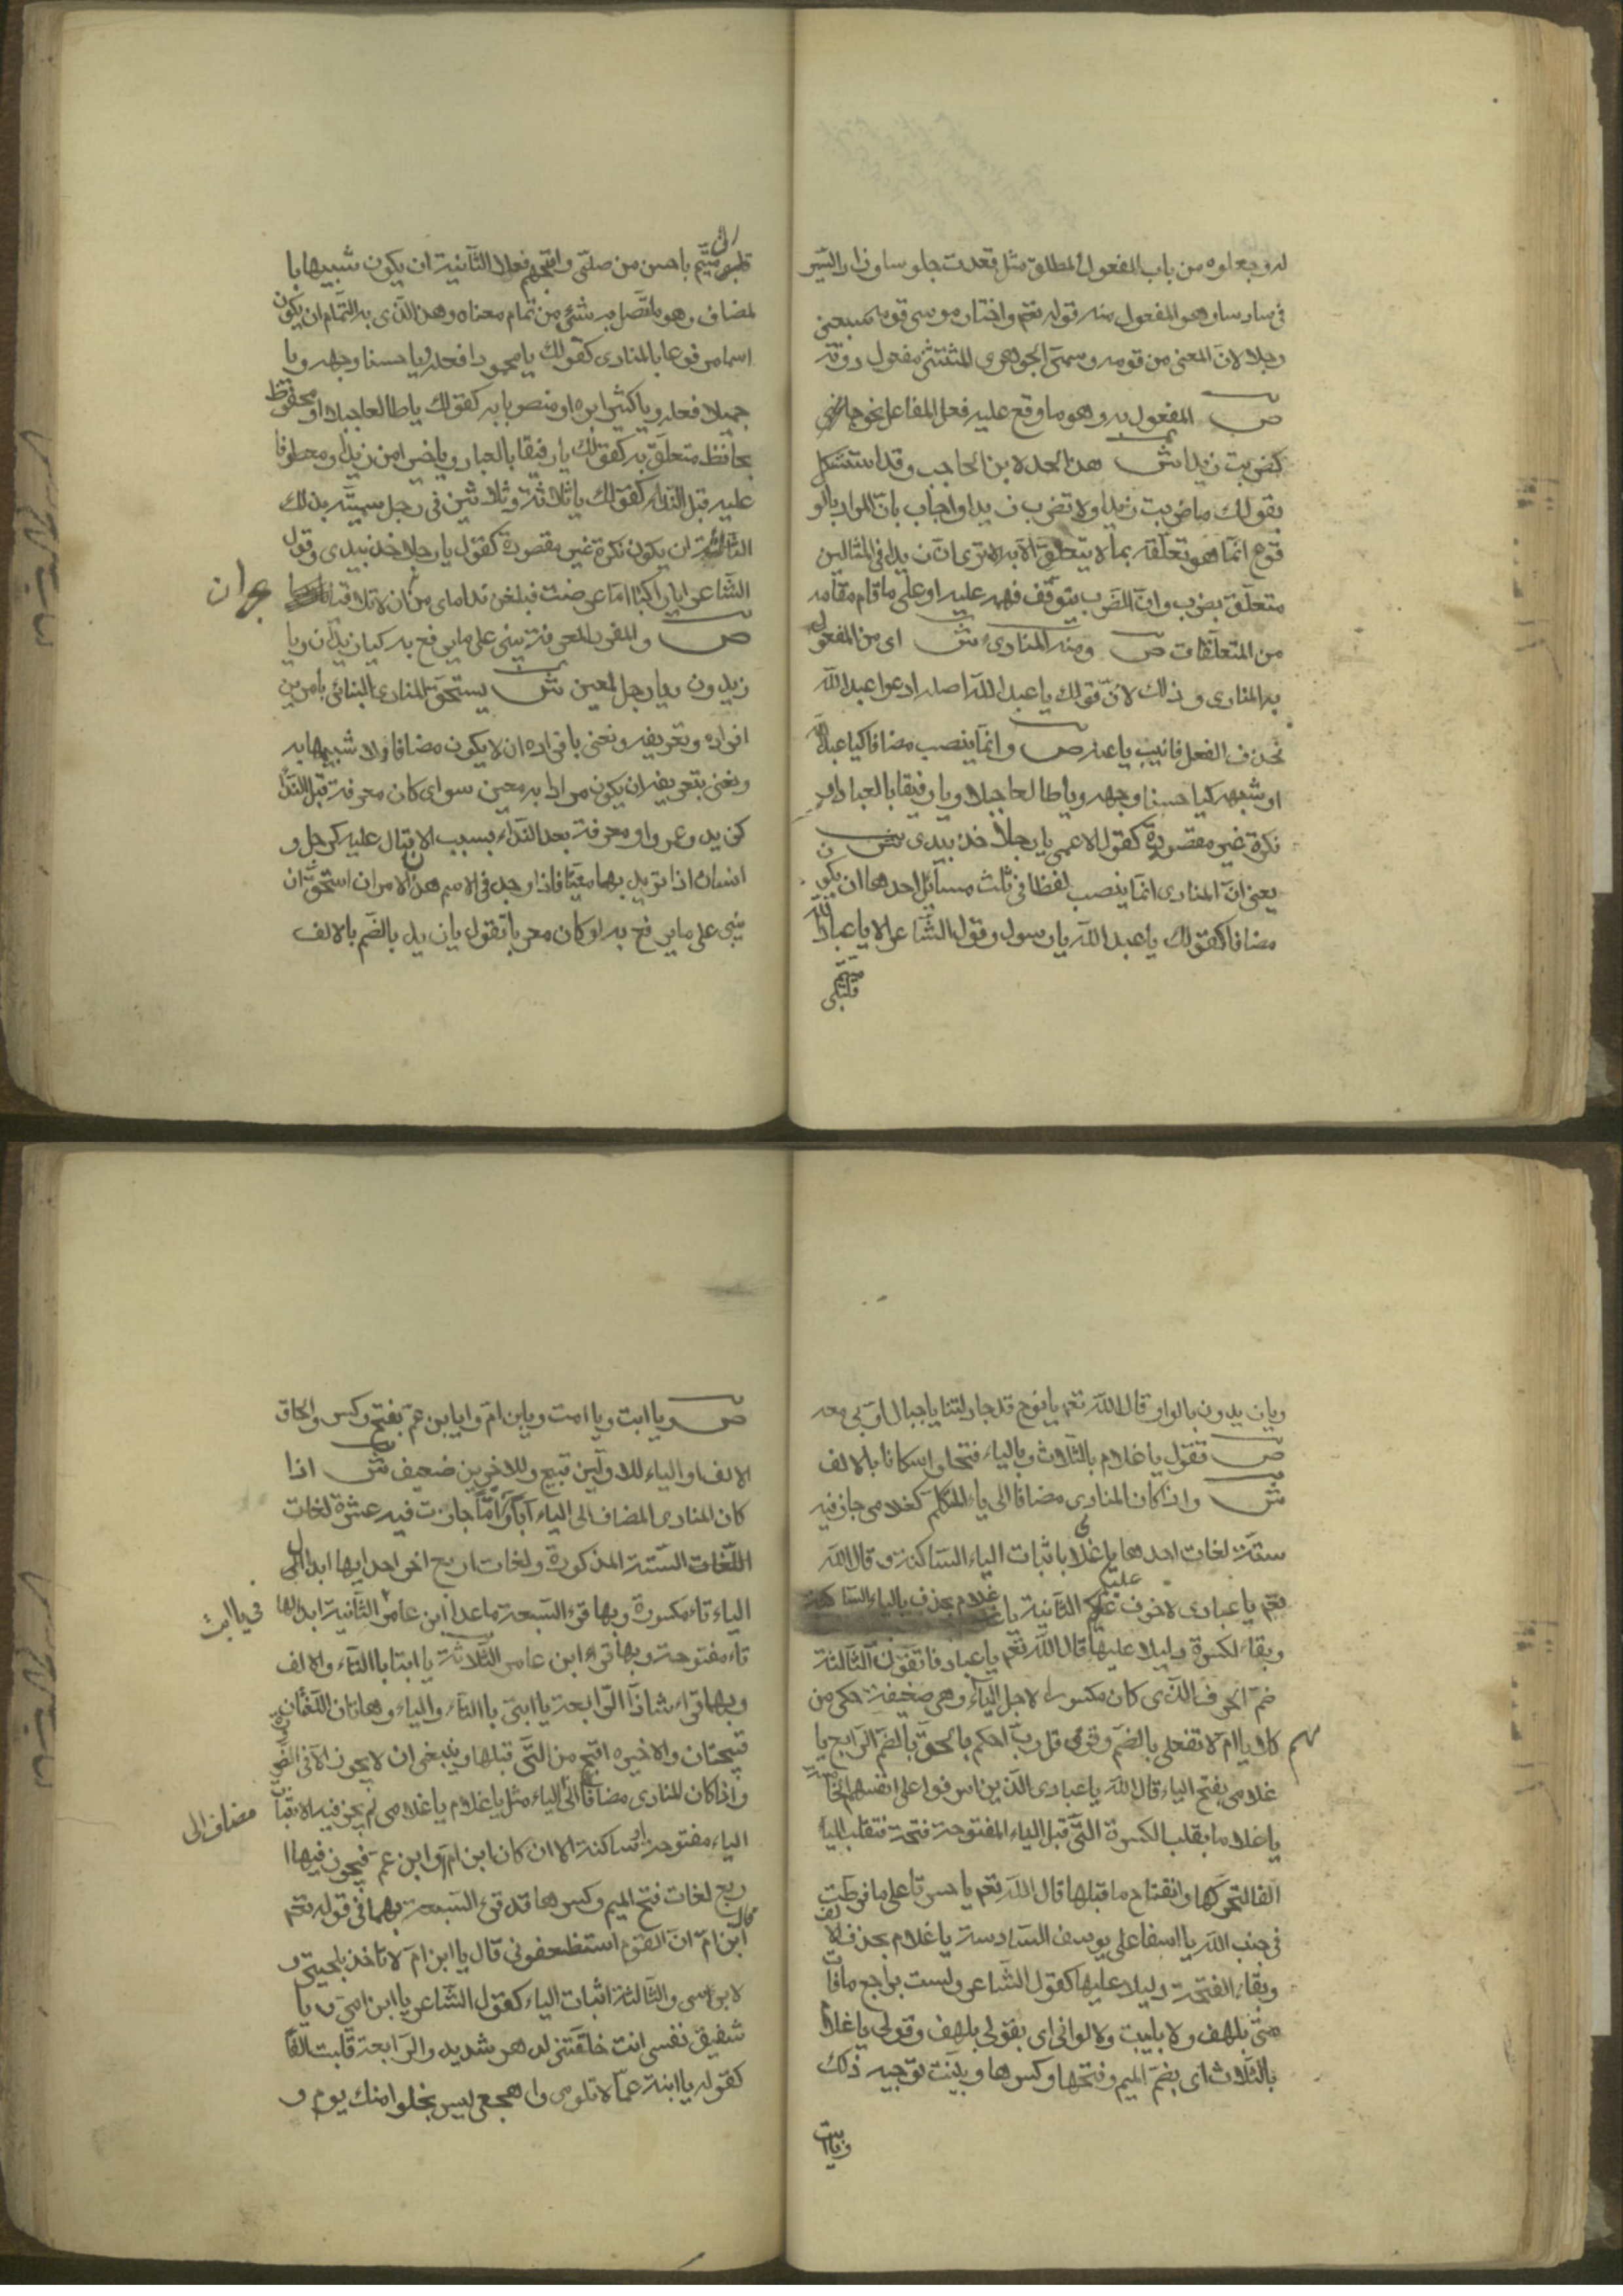 له وجعلوه من باب المفعول المطلق مثل قعدت جلوسا وزاد السير
في سادسا وهو المفعول منه قوله تعم واختار موسى قومه سبعين
رجلا لان المعنى من قومه وسمى الجوهرى المثتثنى مفعول دونه
ص المفعول به وهو ما وقع عليه فعل الفاعل
كضربت زيدا ش هذا الحد لابن الحاجب وقد استشكل
بقولك ما ضربت زيدا ولا تضرب زيدا واجاب بان المراد بالو
قوع انما هو تعلقه بما لا يتعلق الا به الا ترى ان زيدا في المثالين
متعلق بضرب وان الضرب يتوقف فهمه عليه او على ما قام مقامه
من المتعلقات ص ومنه المنادى ش اى من المفعول
به المنادى وذلك لان قولك يا عبد الله اصله ادعوا عبد الله
نحذف الفعل فانيب يا عنه ص وانما ينصب مضافا كيا عبد الله
او شبهه كيا حسنا وجهه ويا طالعا جبلا ويا رفيقا بالعباد او
نكرة غير مقصودة كقول الاعمى يا رجلا خذ بيدى ش
يعنى ان المنادى انما ينصب لفظا في ثلث مسائل احدها ان يكون
مضافا كقولك يا عبد الله يا رسول وقول الشاعر الا يا عباد الله
قلبى متيم
قلبى متيم باحسن من صلى واقبحهم فعلا الثانية ان يكون شبيها با
لمضاف وهو ما اتصل به شئ من تمام معناه وهذا الذى به التمام ان يكون
اسما مرفوعا بالمنادى كقولك يا محمودا فعله ويا حسنا وجهه ويا
جميلا فعله ويا كثيرا بره او منصوبا به كقولك يا طالعا جبلا او محفوظ
بحافظ متعلق به كقولك يا رفيقا بالعباد ويا خيرا من زيد او معطوفا
عليه قبل النداء كقولك يا ثلاثة وثلاثين في رجل سميته بذلك
الثالثة ان يكون نكرة غير مقصودة كقول يا رجلا خذ بيدى وقول
الشاعر ايا راكبا اما عرضت فبلغن نداماى من نجران لا تلاقيا
نجران
ص والمفرد المعرفة يبنى على ما يرفع به كيا زيدان ويا
زيدون ويا رجل لمعين ش يستحق المنادى البنائى بامرين
افراده وتعريفه ونعنى بافراده ان لا يكون مضافا ولا شبيها به
ونعنى بتعريفه ان يكون مرادا به معين سواى كان معرفة قبل النداء
كزيد وعمرو او معرفة بعد النداء بسبب الاقبال عليه كرجل و
انسان اذا تريد بهما معينا فاذا وجد في الاسم هذان الامران استحق ان
يبنى على ما يرفع به لو كان معربا تقول يا زيد بالضم بالالف
ويا زيدون بالواو قال الله تعم يا نوح قد جادلتنا يا جبال اوبى معه
ص تقول يا غلام بالثلاث وبالياء فتحا واسكانا بالالف
ش واذا كان المنادى مضافا الى ياء المتكلم كغلامى جاز فيه
ستة لغات احدها يا غلامى باثبات الياء الساكنة وقال الله
تعم يا عبادى لا خوف عليكم الثانية يا غلام بحذف بالياء الساكنة
وبقاء لكسرة دليلا عليها قال الله تعم يا عباد فاتقون الثالثة
ضم الحرف الذى كان مكسورا لاجل الياء وهى ضعيفة حكى من
كلامهم يا ام لا تفعلى بالضم وقرى قل رب احكم بالحق بالضم الرابع يا
غلامى بفتح الياء قال الله يا عبادى الذين اسرفوا على انفسهم الخامسة
يا غلاما بقلب الكسرة التى قبل الياء المفتوحة فتحة فتقلب الياء
الفا لتحركها وانفتاح ما قبلها قال الله تعم يا حسرتا على ما فرطت
في جنب الله يا اسفا على يوسف السادسة يا غلام بحذف الالف
وبقاء الفتحة دليلا عليها كقول الشاعر ولست براجع ما فات
منى بلهف ولا بليت ولا لوانى اى بقولى بلهف وقولى يا غلام
بالثلاث اى بضم الميم وفتحها وكسرها وبينت توجيه ذلك
ويا ابت
ص ويا ابت ويا امت ويا بن ام وايا بن عم بفتح وكسر والحاق
الالف او الياء للاولين قبيح وللاخرين ضعيف ش اذا
كان المنادى المضاف الى الياء ابا او اما جازت فيه عشرة لغات
اللغات الستة المذكورة ولغات اربع اخر احدايها ابدال
الياء تاء مكسورة وبها قرء السبعة ما عدا ابن عامر الثانية ابدالها
في يا ابت
تاء مفتوحة وبها قرء ابن عامر الثلاثة يا ابتا باالتاء والالف
وبها قراء شاذا الرابعة يا ابتى باالتاء والياء وهاتان اللغتان
قبيحتان والاخيره اقبح من التى قبلها وينبغى ان لا يجوز الا فى الضرورة
واذا كان المنادى مضافا الى الياء مثل يا غلام يا غلامى لم يجز فيه الا اثبات
مضاف الى
الياء مفتوحة او ساكنة الا ان كان ابن ام وابن عم فيجوز فيها ا
ربع لغات فتح الميم وكسرها قد قرء السبعة بهما في قوله تعم
قال ابن ام ان القوم استضعفونى قال يا ابن ام لا تاخذ بلحيتى و
لا براسى والثالثة اثبات الياء كقول الشاعر يا ابن امى ويا
شفيق نفسى انت خلفتنى لدهر شديد والرابعة قلبت الفا
كقوله يا ابنة عما لا تلومى واهجعى ليس يخلوا منك يوم و